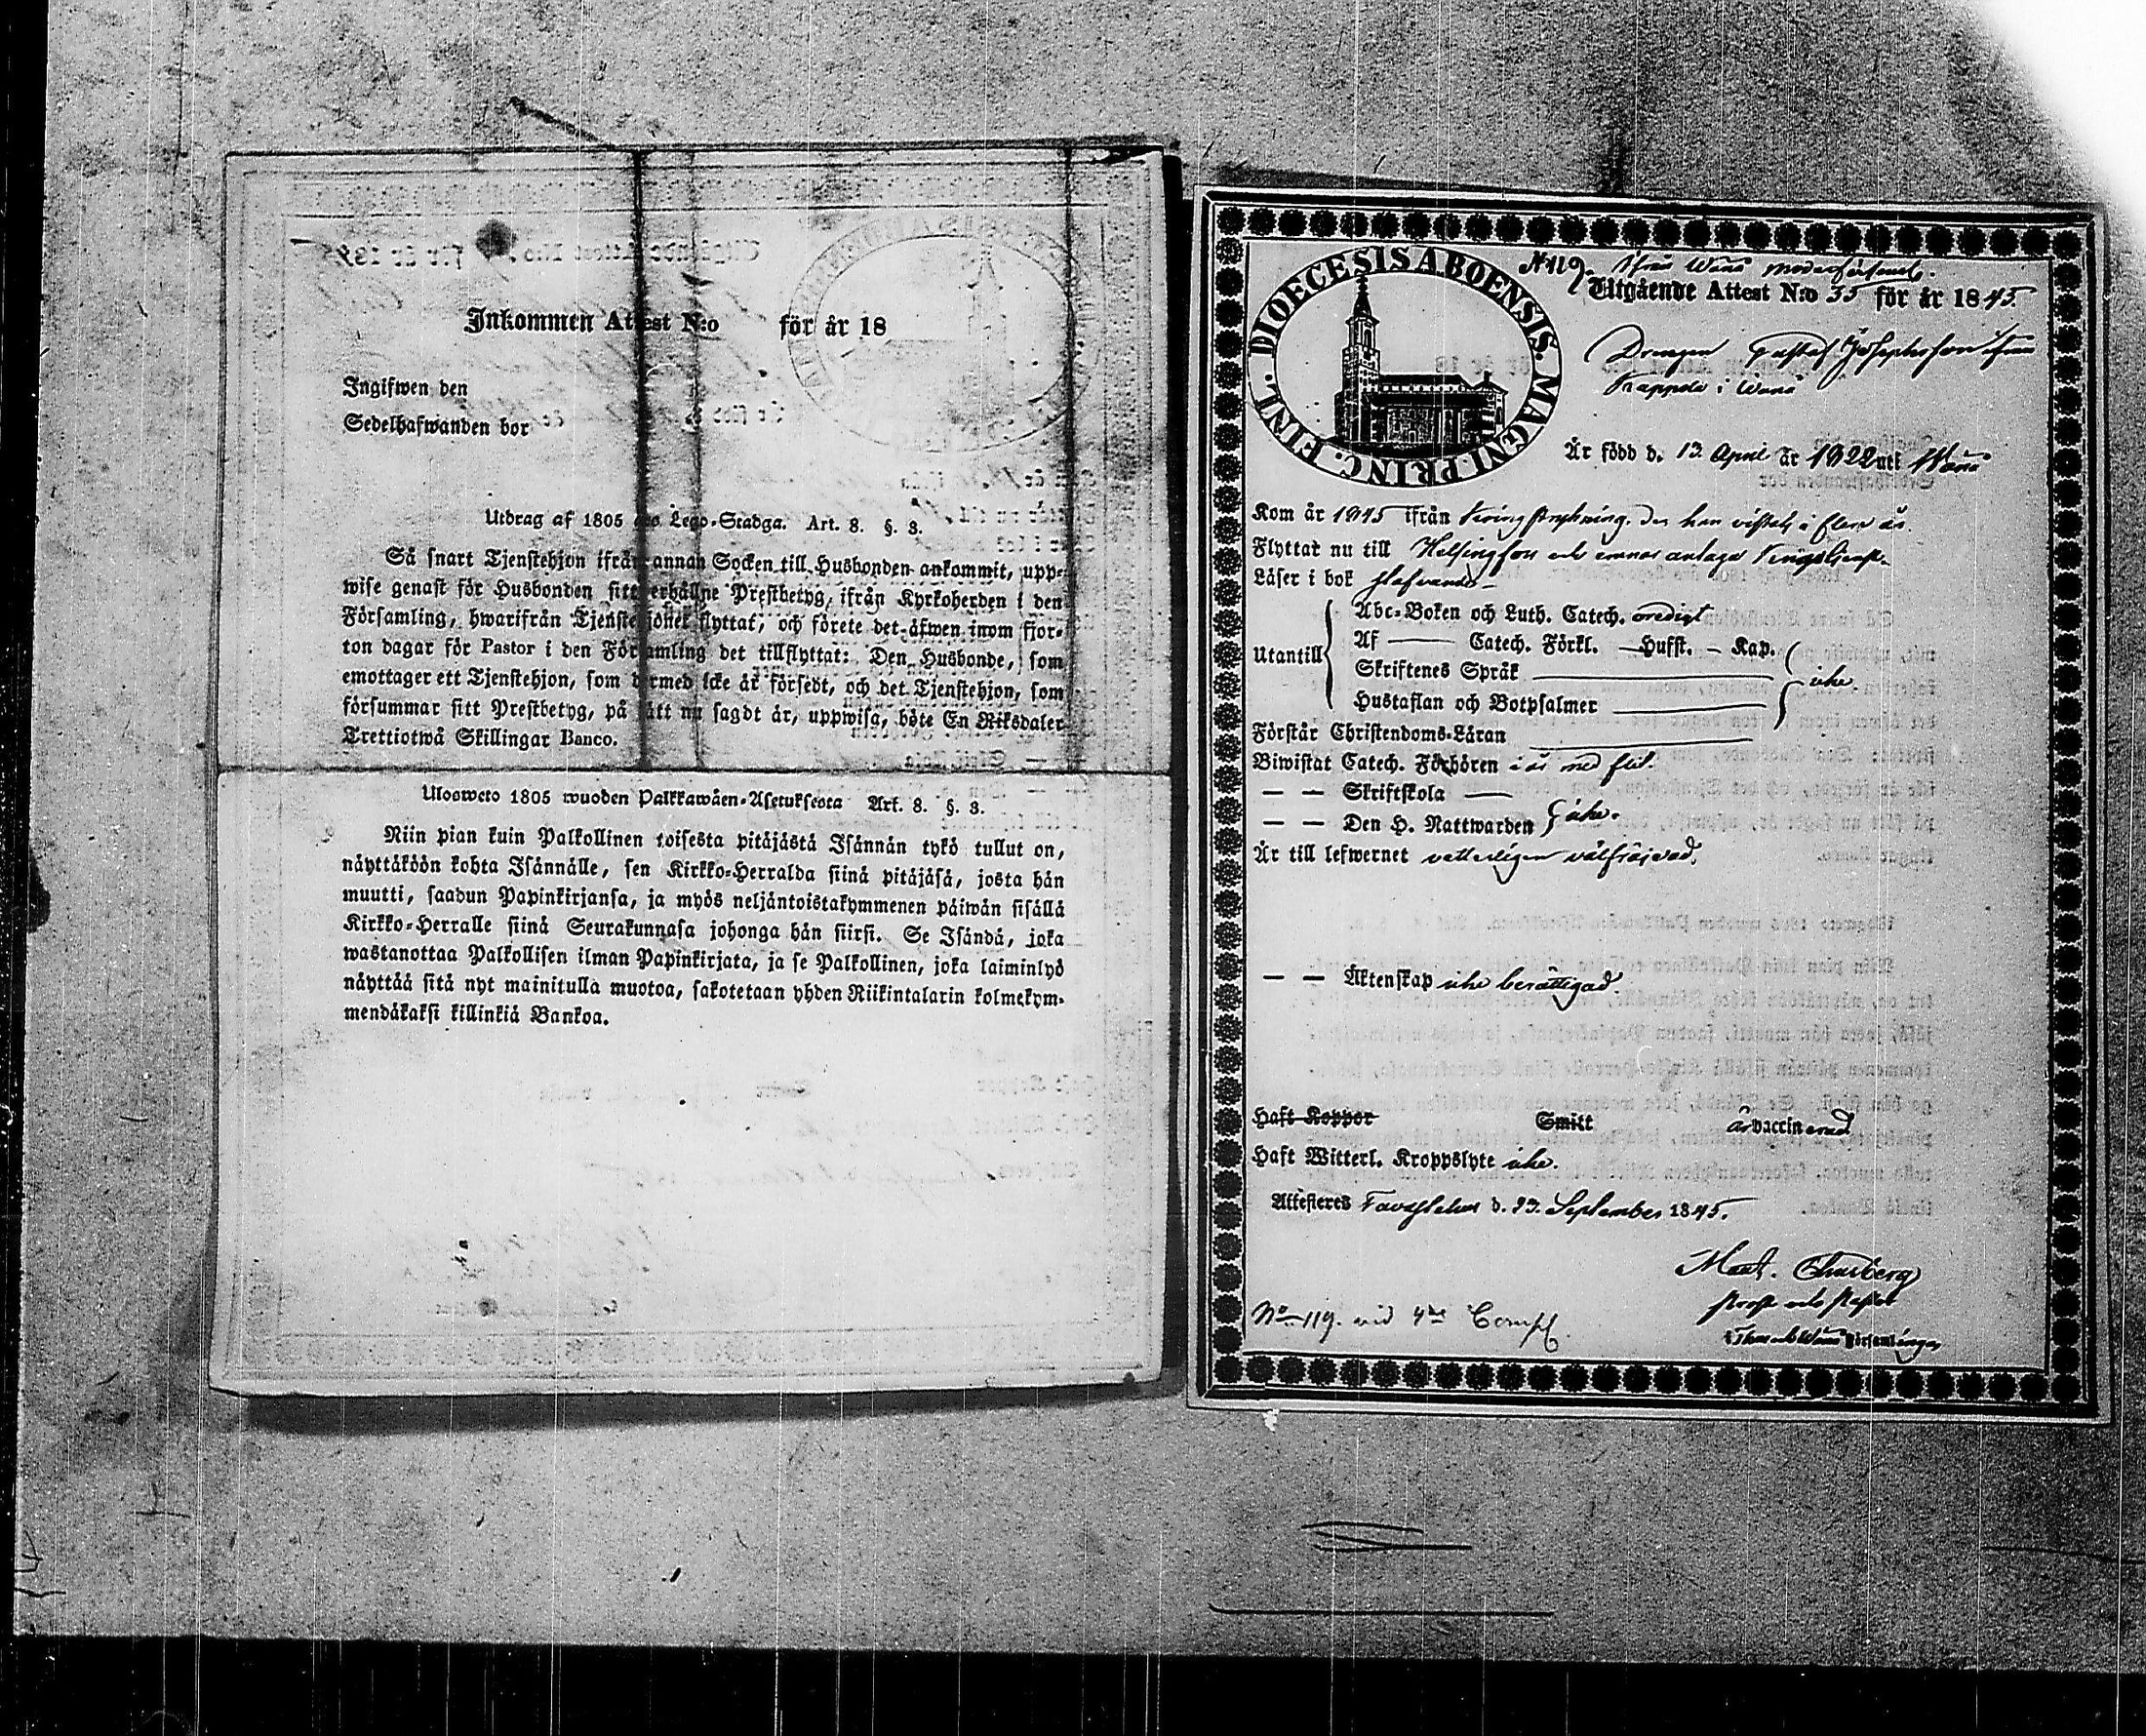 Inkommen Attest N:o för år 18
Ingifwen den
Sedelhafwanden bor
Utdrag af 1805 Lego-Stadga. Art. 8. §. 3.
Så snart Tjenstehjon ifrån annan Socken till Husbonden ankommit, upp-
wise genast för Husbonden sitt erhållne Prestbetyg, ifrån Kyrkoherden i den
Församling, hwarifrån Tjenstehjonet flyttat, och förete det äfwen inom fjor-
ton dagar för Pastor i den Församling det tillflyttat: Den Husbonde, som
emottager ett Tjenstehjon, som dermed icke är försedt, och det Tjenstehjon, som
försummar sitt Prestbetyg, på sätt nu sagdt är, uppwisa, böte En Riksdaler
Trettiotwå Skillingar Banco.
Ulosweto 1805 wuoden Palkkawäen-Asetuksesta Art. 8. §. 3.
Niin pian kuin Palkollinen toisesta pitäjästä Isännän tykö tullut on,
näyttäköön kohta Isännälle, sen Kirkko-Herralda siinä pitäjäsä, josta hän
muutti, saadun Papinkirjansa, ja myös neljäntoistakymmenen päiwän sisällä
Kirkko-Herralle siinä Seurakunnasa johonga hän siirsi. Se Isändä, joka
wastanottaa Palkollisen ilman Papinkirjata, ja se Palkollinen, joka laiminlyö
näyttää sitä nyt mainitulla muotoa, sakotetaan yhden Riikintalarin kolmekym-
mendäkaksi killinkiä Bankoa.
DIOECESIS ABOENSIS. MAGNI PRINC. FINL.
N 119. ifrån Wånå moderförsamls.
Utgående Attest N:o 35 för år 1845
Drengen Gustaf Josephsson ifrån
Kappola i Wånå
Är född d. 13 April år 1822 uti Wånå
Kom år 1845 ifrån der han vistats i flere år.
Flyttar nu till Helsingfors och ernar antaga Krigstjenst.
Läser i bok stafvande
Utantill Abc-Boken och Luth. Catech. oredigt
Af Catech. Förkl. Hufst. Kap.
Skriftenes Språk icke
Hustaflan och Botpsalmer
Förstår Christendoms-Läran
Biwistat Catech. Förhören i år med flit.
— — Skriftskola
— — Den H. Nattwarden icke.
Är till lefwernet vetterligen välfräjdad.
— — Äktenskap icke berättigad.
Haft Koppor Smitt är vaccinerad
Haft Witterl. Kroppslyte icke.
Attesteres Tavastehus d. 23. September 1845.
Matt. Thurberg
Prost och Pastor
N:o 119. vid 4de Comp.